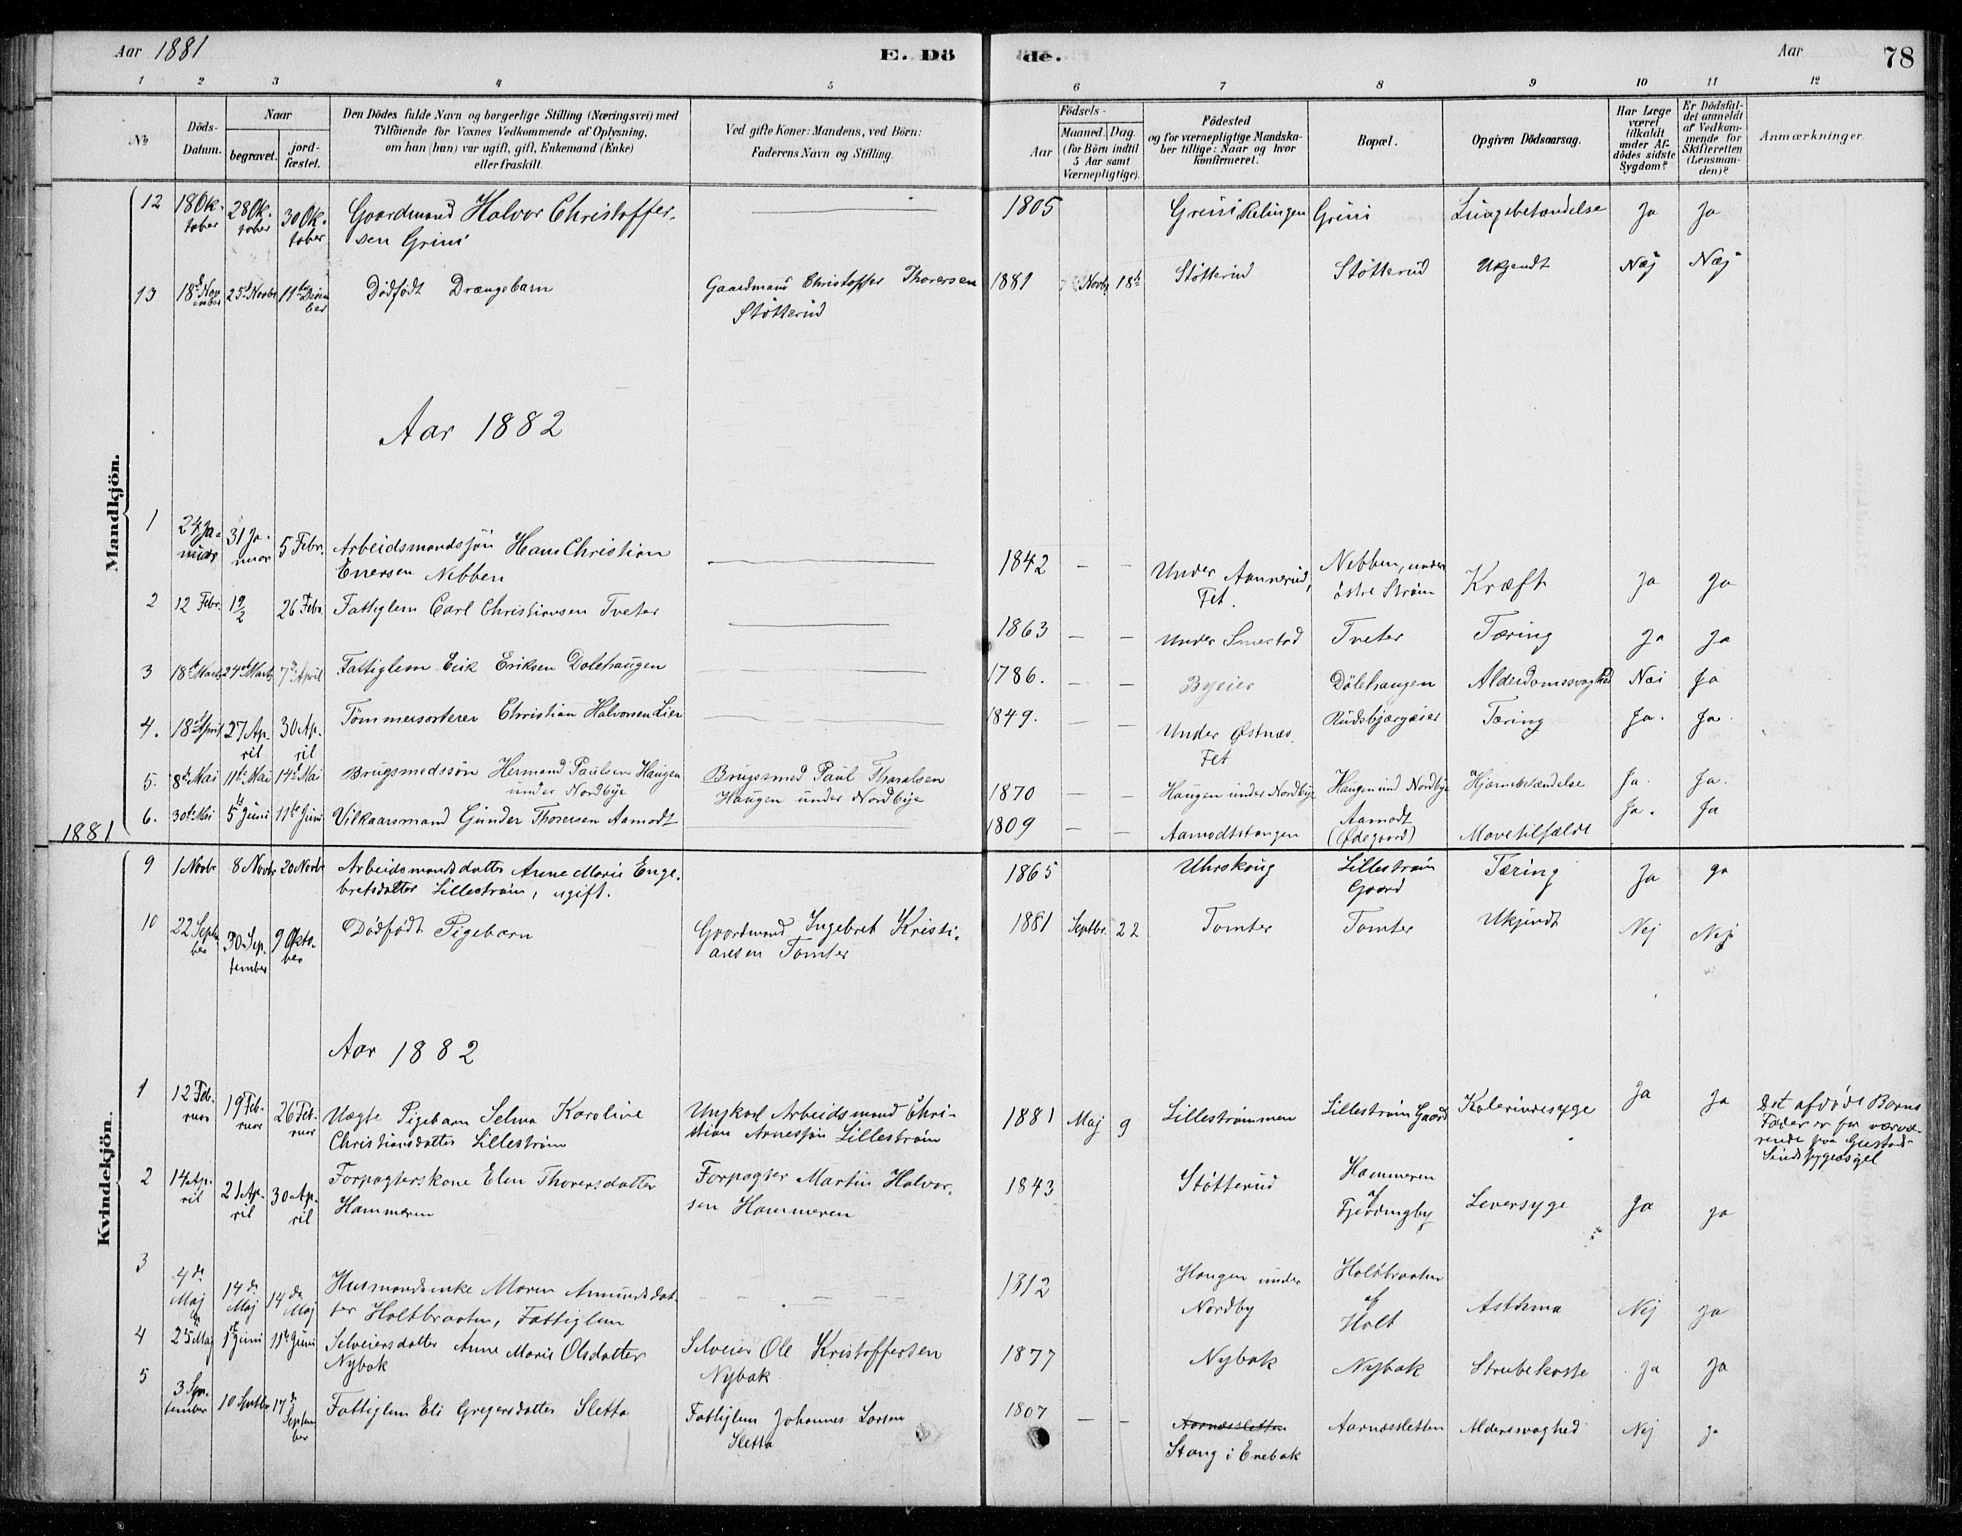 Aar 1881 E. Dö de. Aar 78
1 2 3 4 5 6 7 8 9 10 11 12
No
Döds-Datum.
Naar
begravet.
jordfæstet.
Den Dödes fulde Navn og borgerlige Stilling (Næringsvei) med
Tilföiende for Voxnes Vedkommende af Oplysning,
om han (hun) var ugift, gift, Enkemand (Enke)
eller fraskilt.
Ved gifte Koner: Mandens, ved Börn:
Faderens Navn og Stilling.
Födsels-
Aar
Maaned. Dag.
(for Börn indtil
5 Aar samt
Værnepligtige).
Födested
og for værnepligtige Mandska-
ber tillige: Naar og hvor
konfirmeret.
Bopæl.
Opgiven Dödsaarsag.
Har Læge
været
tilkaldt
under Af-
dödes sidste
Sygdom?
Er Dödsfal-
det anmeldt
af Vedkom-
mende for
Skifteretten
(Lensman-
den)?
Anmærkninger.
Mandkjön.
12 18 Oktober 28 Oktober 30 Oktober Gaardmand Halvor Christoffersen Grini 1805 Grini Relingen Grini Lungebetændelse Ja Ja
13 18de November 25de Novbr 11te December Dödfödt Drængebarn Gaardmand Christoffer Thorersen Stötterud 1881 Novbr 18de Stötterud Stötterud Ukjendt Nej Nej
Aar 1882
1 24 Januar 31 Januar 5 Febr. Arbeidsmandssön Hans Christian Enersen Nebben 1842 – – Under Aannerud, Fet. Nebben, under östre Ström Kræft Ja Ja
2 12 Febr. 19/2 26 Febr Fattiglem Carl Christiansen Tveter 1863 – – Under Smestad Tveter Tæring Ja Ja
3 18de Marts 24de Marts 7de April Fattiglem Erik Eriksen Dolehaugen 1786. – – Byeier Dölehaugen Alderdomssvaghed Nei Ja
4. 18de April 27 April 30 April Tömmersorterer Christian Halvorsen Lier 1849. – – Under Østnæs Fet Rudsbjærgeier Tæring Ja. Ja.
5. 8de Mai 11te Mai 14de Mai Brugsmedssön Hermand Paulsen Haugen under Nordbye Brugsmed Paul Tharalsen Haugen under Nordbye 1870 – – Haugen under Nordbye Haugen und Nordbye Hjernebetændelse Ja. Ja.
6. 30te Mai 5te Juni 11te Juni Vilkaarsmand Gunder Thorersen Aamodt 1809 – – Aamodtstangen Aamodt (Ødegaard) Mavetilfælde Ja. Ja
1881
Kvindekjön.
9 1 Novbr 8 Novbr 20 Novbr Arbeidsmandsdatter Anne Marie Engebretsdatter Lilleström, ugift. 1865 Uhrskoug Lilleström Gaard Tæring Ja Ja
10 22 September 30 September 9 Oktober Dödfödt Pigebarn Gaardmand Ingebret Kristiansen Tomter 1881 Septbr. 22 Tomter Tomter Ukjendt Nej Nej
Aar 1882
1 12 Februar 19 Februar 26 Februar Uægte Pigebarn Selma Karoline Christiansdatter Lilleström Ungkarl Arbeidsmand Christian Arnessön Lilleström 1881 Maj 9 Lilleströmmen Lilleström Gaard Kolerinesyge Ja Ja Det afdöde Barns Fader er for nærværende paa Gustads Sindssygeasyl
2 14 April 21 April 30 April Forpagterskone Elen Thorersdatter Hammeren Forpagter Martin Halvorsen Hammeren 1843 Stötterud Hammeren af Fjerdingby Leversyge Ja Ja
3 4de Maj 14de Maj 14de Maj Husmandsenke Maren Amundsdatter Holtbraaten, Fattiglem – – – – 1812 Haugen under Nordby Holtbraaten af Holt Asthma Nej Ja
4 25 Maj 1ste Juni 11te Juni Selveiersdatter Anne Marie Olsdatter Nybak Selveier Ole Kristoffersen Nybak 1877 Nybak Nybak Strubehoste Ja Ja
5 3 September 10 Septbr 17de September Fattiglem Eli Gregersdatter Sletta Fattiglem Johannes Larsen Sletta 1807 – – Aarnæssletten Stang i Enebak Aarnæssletten Aldersvaghed Nej Ja